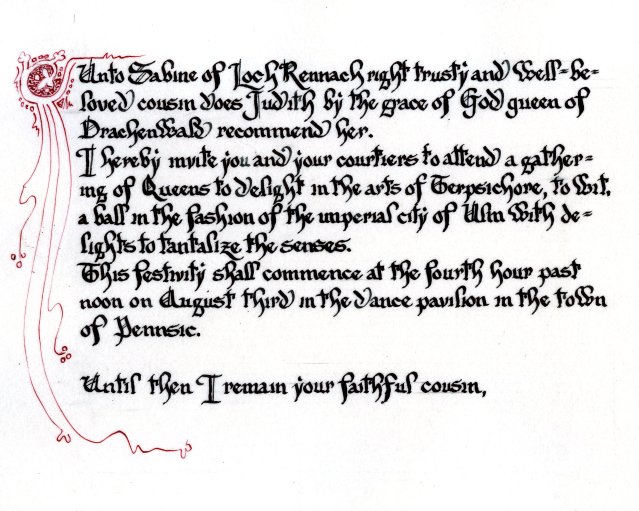 Unto Sabine of Loch Rennach right trusty and well-be-
loved cousin does Judith by the grace of God queen of
Drachenwald recommend her.
I hereby invite you and your courtiers to attend a gather-
ing of Queens to delight in the arts of Terpsichore, to wit,
a ball in the fashion of the imperial city of Ulm with de-
lights to tantalize the senses.
This festivity shall commence at the fourth hour past
noon on August third in the dance pavilion in the town
of Pennsic.
Until then I remain your faithful cousin,